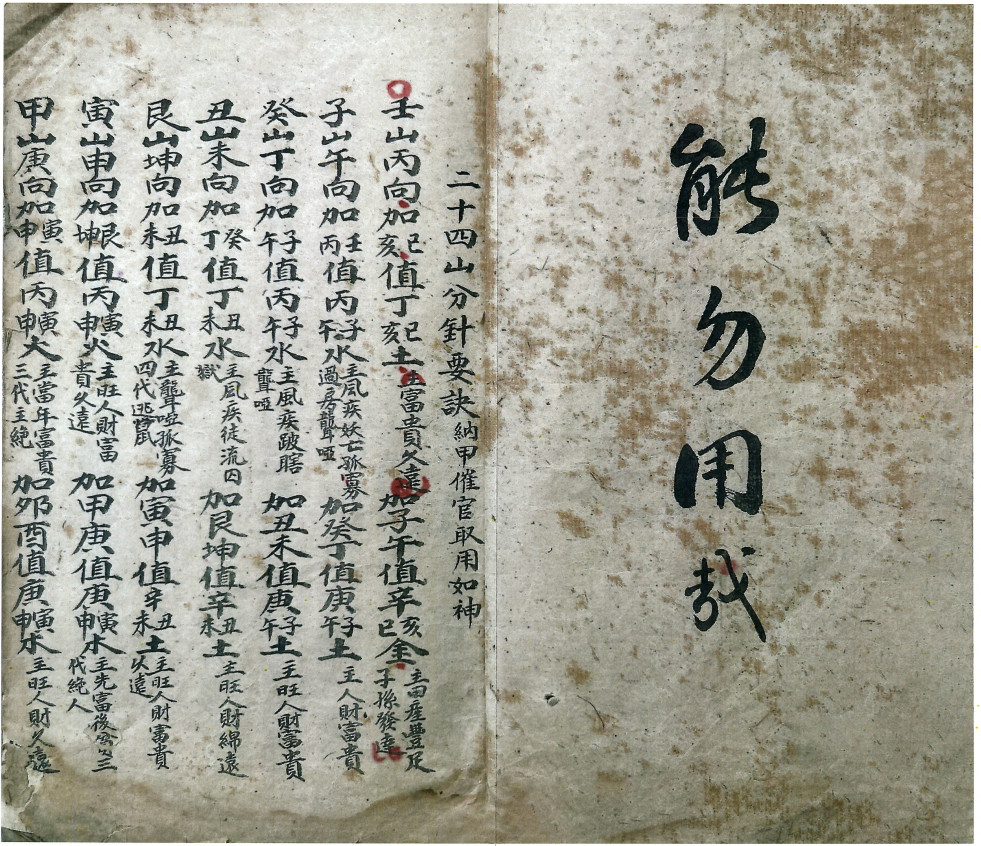 能勿用哉
二十四山分針要訣納甲催官取用如神
壬山丙向加巳亥值丁巳亥土主富貴久遠加子午值辛亥巳金主田產豐足子孫發達
子山午向加壬丙值丙子午水主風疾妖亡孤寡過房聾啞加癸丁值庚子午土主人財富貴
癸山丁向加子午值丙子午水主風疾跛瞎聾啞加丑未值庚子午土主旺人財富貴
丑山未向加癸丁值丁丑未水主風疾徒流囚獄加艮坤值辛丑未土主旺人財綿遠
艮山坤向加丑未值丁丑未水主聾啞孤寡四代逃加寅申值辛丑未土主旺人財富貴久遠
寅山申向加艮坤值丙寅申火主旺人財富貴久遠加甲庚值庚寅申水主先富後三代絕人
甲山庚向加寅申值丙寅申火主當年富貴三代主絕加卯酉值庚寅申水主旺人財久遠